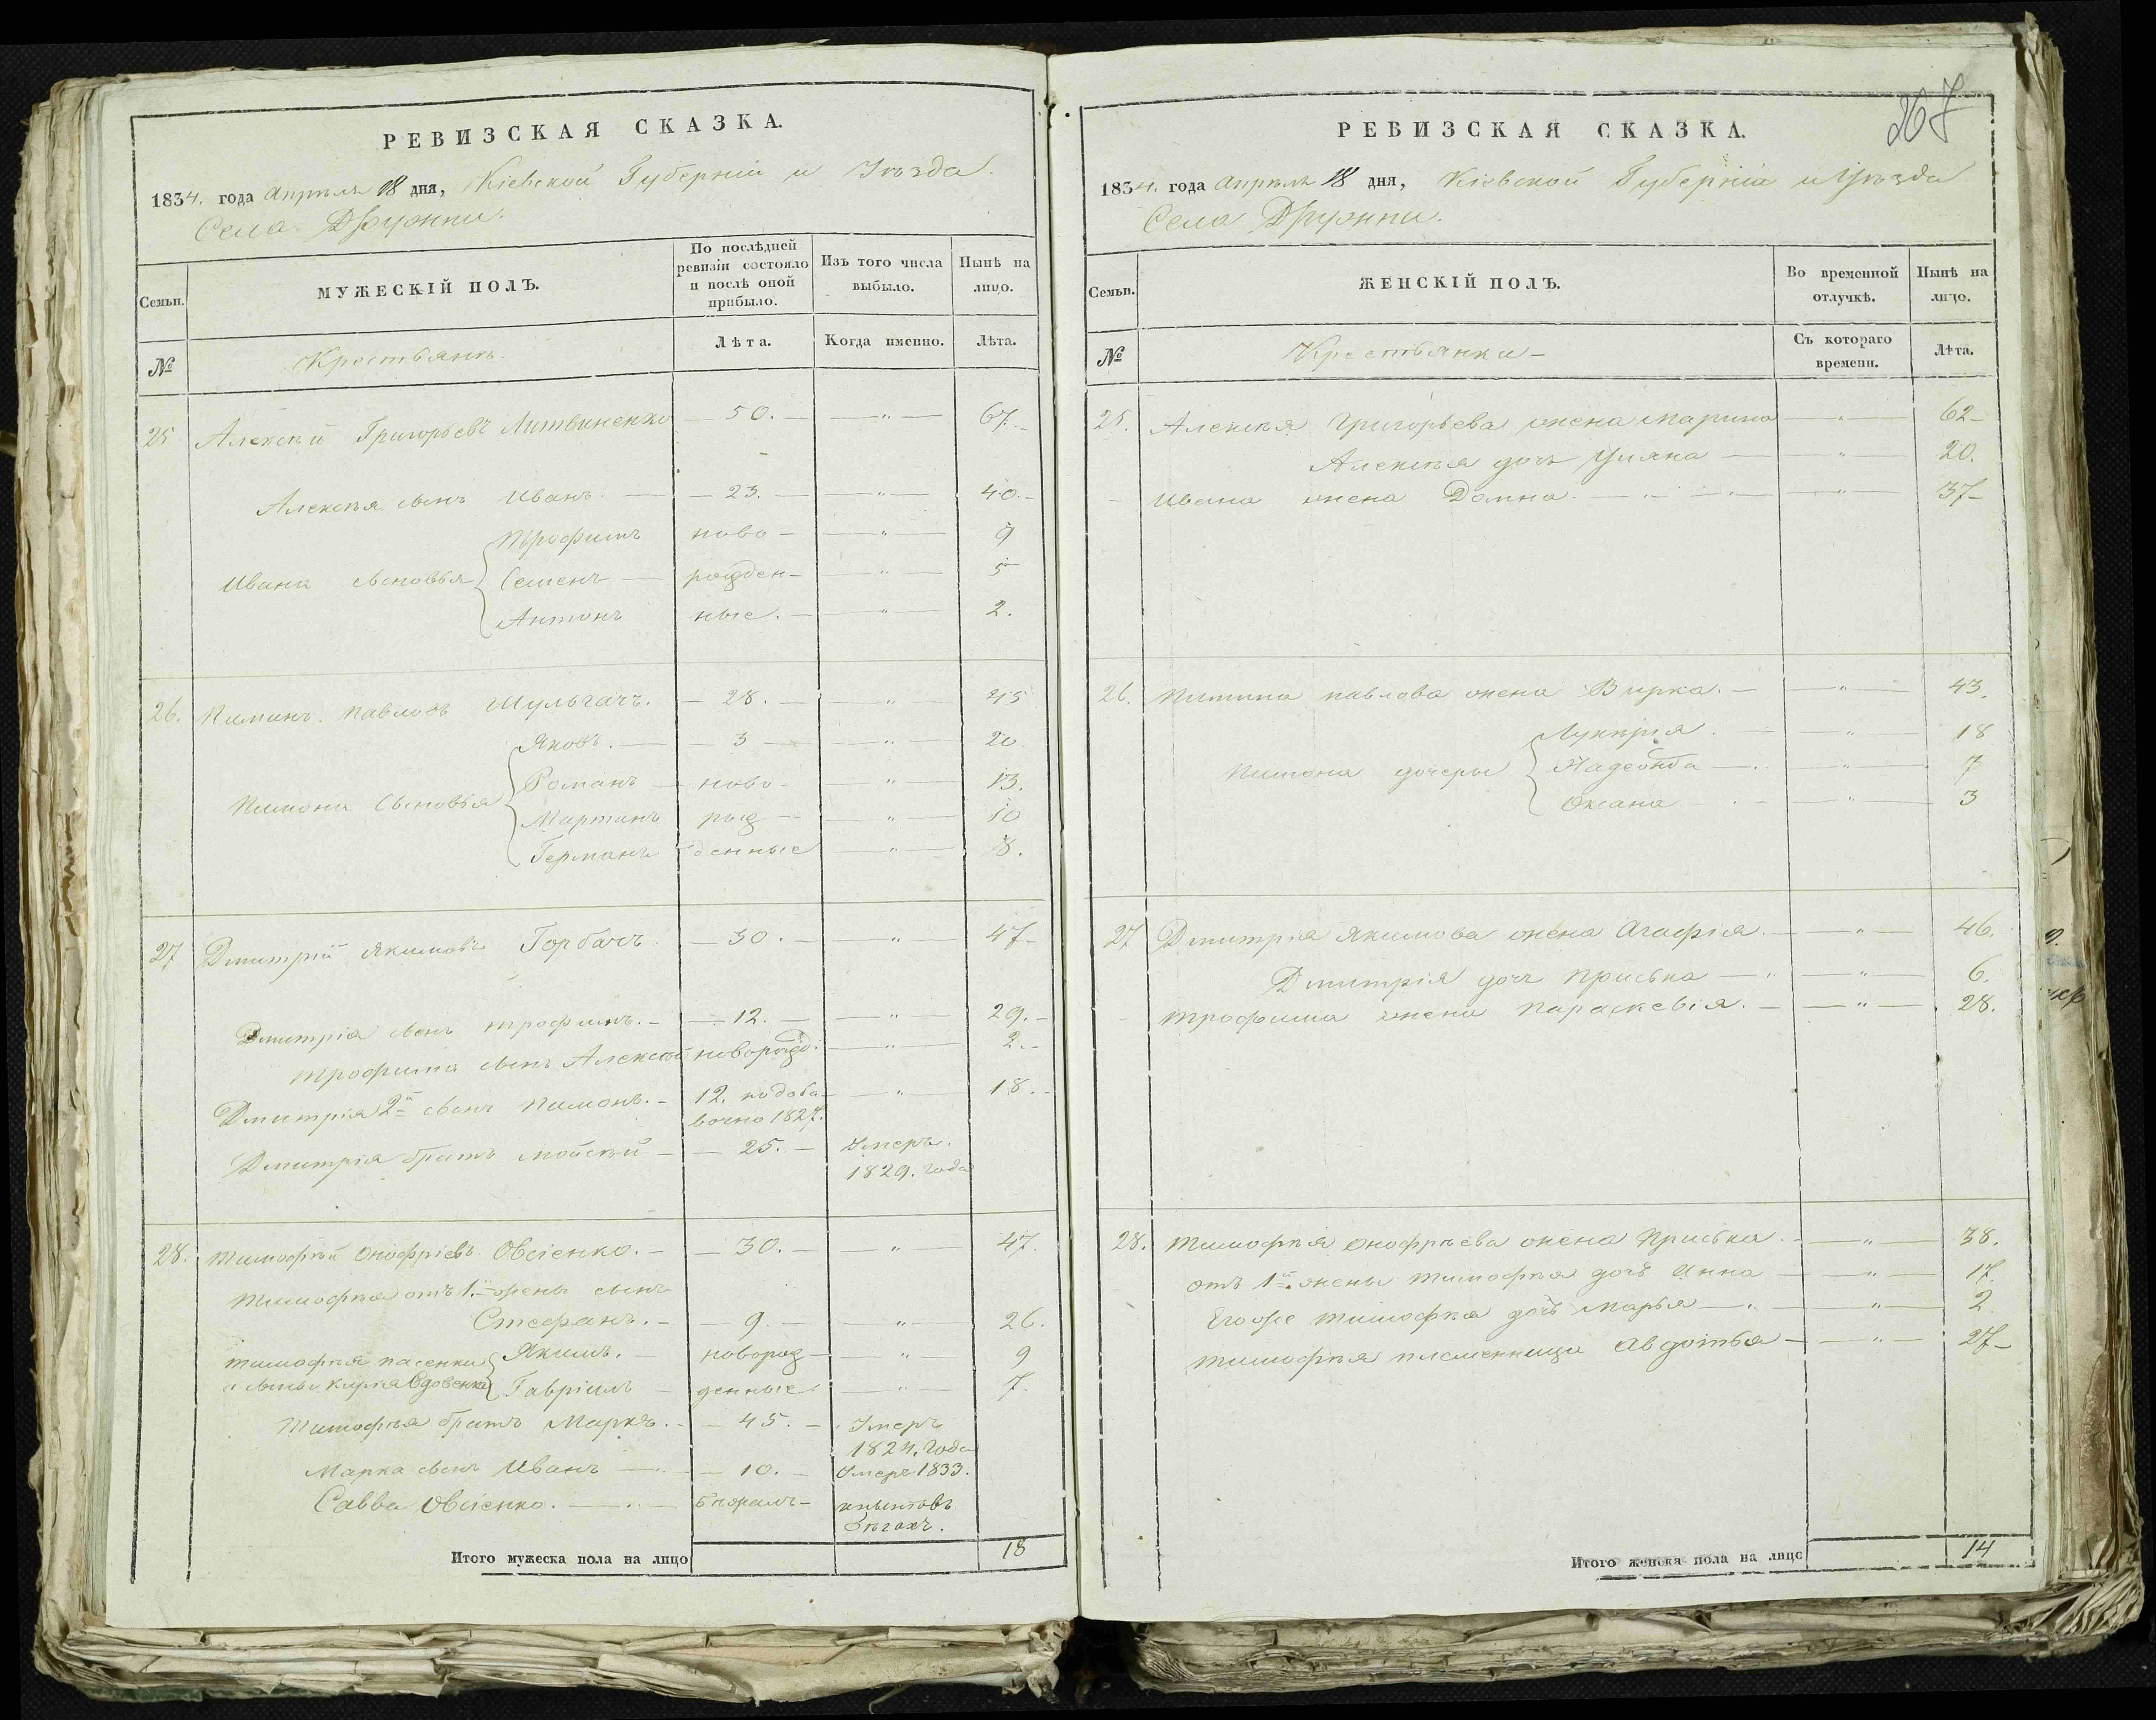 РЕВИЗСКАЯ СКАЗКА.
1834. года Апрѣля 18 дня, Кіевской Губерніи и Уѣзда
Села
Семьи.
МУЖЕСКІЙ ПОЛЪ.
По послѣдней ревизіи состояло и послѣ оной прибыло.
Изъ того числа выбыло.
Нынѣ на лицо.
№
Крестьянъ
Лѣта.
Когда именно.
Лѣта.
25 Алексѣй Григорьевъ Литвиненко — 50. — — " — 67.
Алексѣя сынъ Иванъ. — — 23. — — " — 40. -
Трофимъ ново - — " — 9
Ивана сыновья Семенъ — рожден- — " — 5
Антонъ ные. — — " — 2.
26. Пиминъ Павловъ Шульгачъ. — 28. — — " — 45
Яковъ. — — 3 — — " — 20
Романъ — ново - — " — 13.
Пимона Сыновья Мартинъ рож — — " — 10
Германъ денные — " — 8.
27 Дмитрій Якимовъ Горбачъ — 30. — — " — 47-
Дмитрія сынъ Трофимъ. - — 12. — — " — 29. -
Трофима сынъ Алексѣй новорожд. — " — 2. -
Дмитрія 2й сынъ Пимонъ. - 12. по доба- — " — 18. -
вочно 1827.
Дмитрія братъ Мойсѣй - — 25. — Умеръ.
1829. года
28. Тимофѣй Онофріевъ Овсіенко. - — 30. — — " 47.
Тимофѣя отъ 1й жены сынъ
Стефанъ. - — 9. — — " — 26.
Тимофѣя пасенки Якимъ. — новорож — — " — 9
и сыны Вдовенка Гавріилъ — денные. — " — 7.
Тимофѣя братъ Маркъ. - — 45. — Умеръ
1824. Года
Марка сынъ Иванъ — — 10. — Умеръ 1833.
Савва Овсіенко. — бѣжалъ-
бѣгахъ.
Итого мужеска пола на лицо 18
267
РЕВИЗСКАЯ СКАЗКА.
1834. года Апрѣля 18 дня, Кіевской Губерніи и Уѣзда
Села
Семьи.
ЖЕНСКІЙ ПОЛЪ.
Во временной отлучкѣ.
Нынѣ на лицо.
№
Крестьянки —
Съ котораго времени.
Лѣта.
25. Алексѣя Григорьева жена Марина — " — 62-
Алексѣя дочь Уляна — — " — 20.
Ивана жена Домна. — — " — 37-
26. Пимина Павлова жена Вирка. — — " — 43.
Лукѣрія — — " — 18
Пимона дочеры — " — 7
Оксана — — " — 3
27 Дмитрія Якимова жена Агафія. — — " — 46.
Дмитрія дочь Приська — — " — 6.
Трофима жена Параскевія. — — " — 28.
28. Тимофѣя Онофріева жена Приська. - — " — 38.
отъ 1й жены Тимофѣя дочь Анна — — " — 17.
Егоже Тимофѣя дочь Марья — — " — 2
Тимофѣя племенница Авдотья — — " — 27-
Итого женска пола на лицо 14